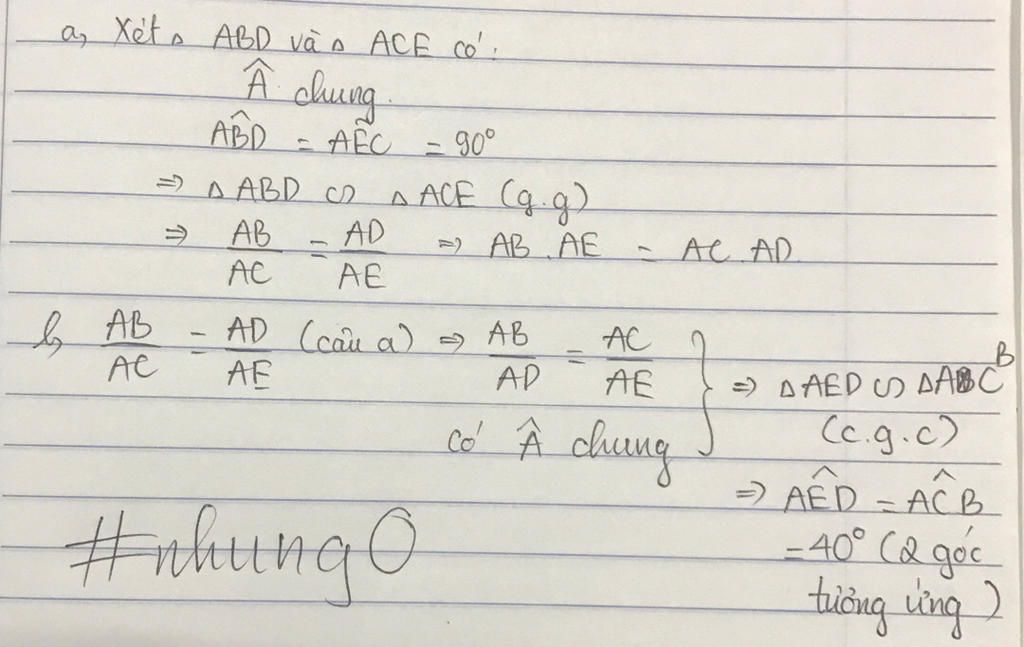 a, Xét Δ ABD và Δ ACE có:
Â chung.
AB̂D = AÊC = 90°
⇒ Δ ABD ∽ Δ ACE (g.g)
⇒ AB/AC = AD/AE ⇒ AB.AE = AC.AD
b, AB/AC = AD/AE (câu a) ⇒ AB/AD = AC/AE
có Â chung
} ⇒ Δ AED ∽ ΔACB
(c.g.c)
⇒ AÊD = AĈB
= 40° (2 góc
tương ứng)
#nhung0